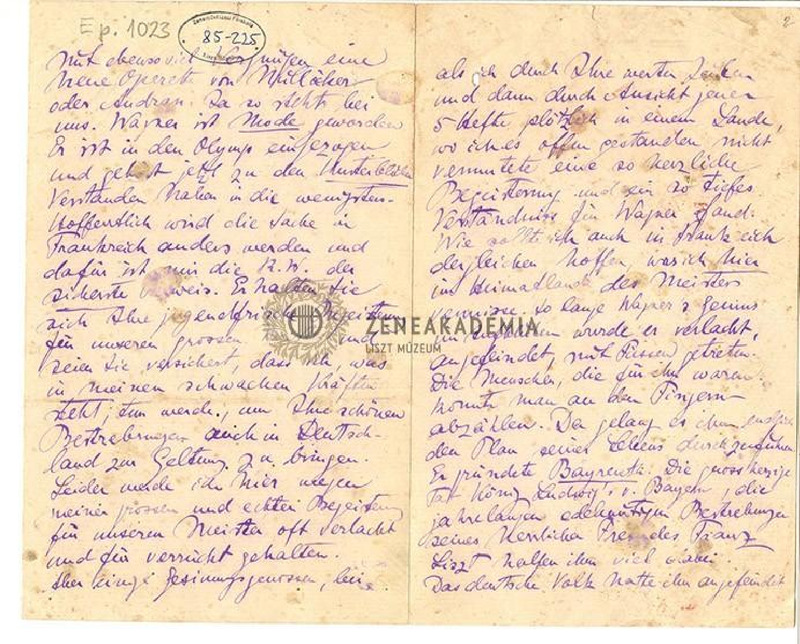 Ep. 1023
Zeneművészeti Főiskola
85-225
Mit ebensoviel Vergnügen eine
neue Operette von Millöcker
oder Audran. Ja so steht's bei
uns. Wagner ist Mode geworden
Er ist in den Olymp eingezogen
und gehört jetzt zu den Unsterblichen
Verstanden haben ihn die wenigsten.
Hoffentlich wird die Sache in
Frankreich anders werden und
dafür ist mir die R.W. der
sicherste Beweis. Erhalten Sie
sich Ihre jugendfrische Begeisterung
für unseren grossen und
seien Sie versichert, dass ich, was
in meinen schwachen Kräften
steht, tun werde, um Ihre schönen
Bestrebungen auch in Deutsch-
land zur Geltung zu bringen.
Leider werde ich hier wegen
meiner grossen und echten Begeisterung
für unseren Meister oft verlacht
und für verrückt gehalten.
Aber einige Gesinnungsgenossen, bei
2
als ich durch Ihre werten Zeilen
und dann durch Ansicht jener
5 Hefte plötzlich in einem Lande,
wo ich es offen gestanden nicht
vermutete eine so herzliche
Begeisterung und ein so tiefes
Verständniss für Wagner fand.
Wie sollte ich auch in Frankreich
dergleichen hoffen, was ich hier
im Heimatlande des Meisters
vermisse. So lange Wagner's Genius
wurde er verlacht,
angefeindet, mit Füssen getreten.
Die Menschen, die für ihn waren
konnte man an den Fingern
abzählen. Da gelang es ihm endlich
den Plan seines Lebens durchzuführen.
Er gründete Bayreuth. Die grossherzige
Tat König Ludwigs v. Bayern, die
jahrelangen edelmütigen Bestrebungen
seines herrlichen Freundes Franz
Liszt halfen ihm viel dabei.
Das deutsche Volk hatte ihn angefeindet
ZENEAKADÉMIA
LISZT MÚZEUM